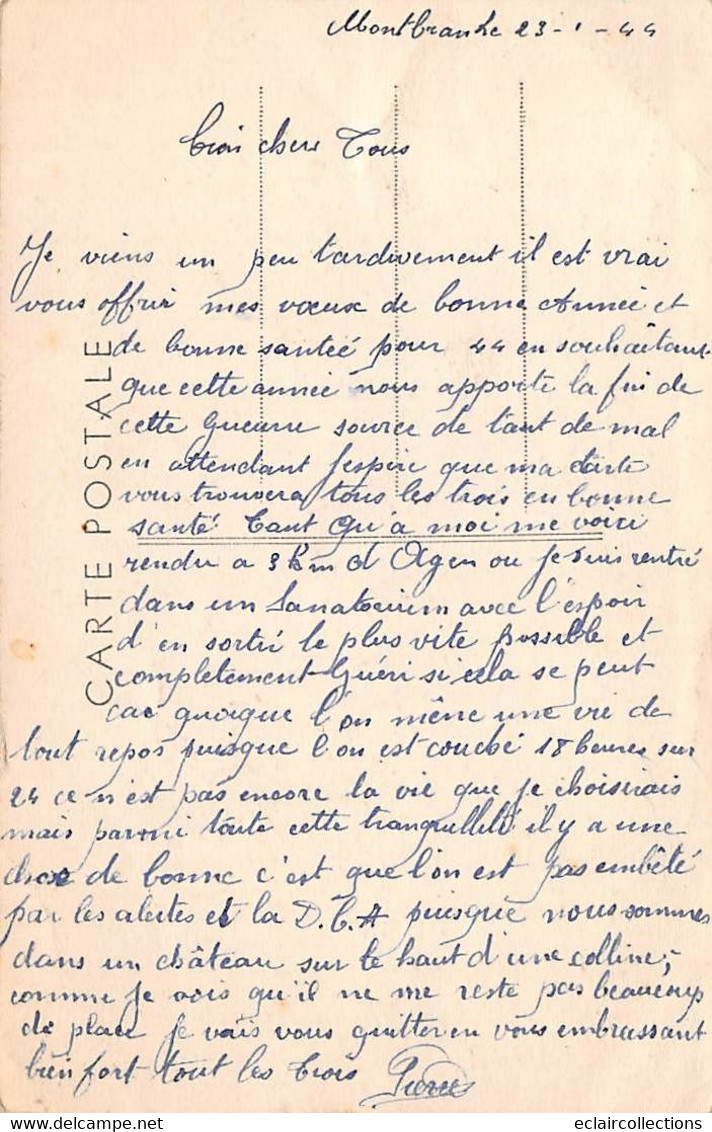 Montbranhe 23-1-44
Très chers Tous
Je viens un peu tardivement il est vrai
vous offrir mes vœux de bonne Année et
de bonne santéé pour 44 en souhaitant
que cette année nous apporte la fin de
cette Guerre source de tant de mal
en attendant J'espère que ma carte
vous trouvera tous les trois en bonne
santé. Tant Qu'à moi me voici
rendu a 3 km d Agen ou Je suis rentré
dans un Sanatorium avec l'espoir
d'en sortir le plus vite possible et
complètement Guéri si cela se peut
car quoique l'on mène une vie de
tout repos puisque l'on est couché 18 heures sur
24 ce n'est pas encore la vie que je choisirais
mais parmi toute cette tranquillité il y a une
chose de bonne c'est que l'on est pas embêté
par les alertes et la D.C.A puisque nous sommes
dans un château sur le haut d'une colline,
comme Je vois qu'il ne me reste pas beaucoup
de place Je vais vous quitter en vous embrassant
bien fort tout les Trois Pierre
CARTE POSTALE
eclaircollections